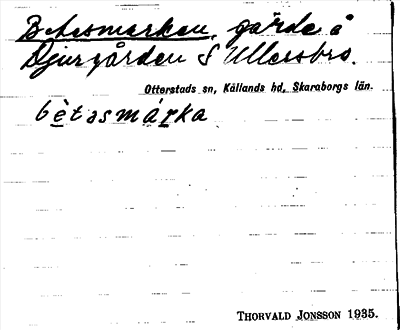 Betesmarken, gärde å
Djurgården S Ullersbro.
Otterstads sn, Kållands hd, Skaraborgs län.
bètasmárka
THORVALD JONSSON 1935.